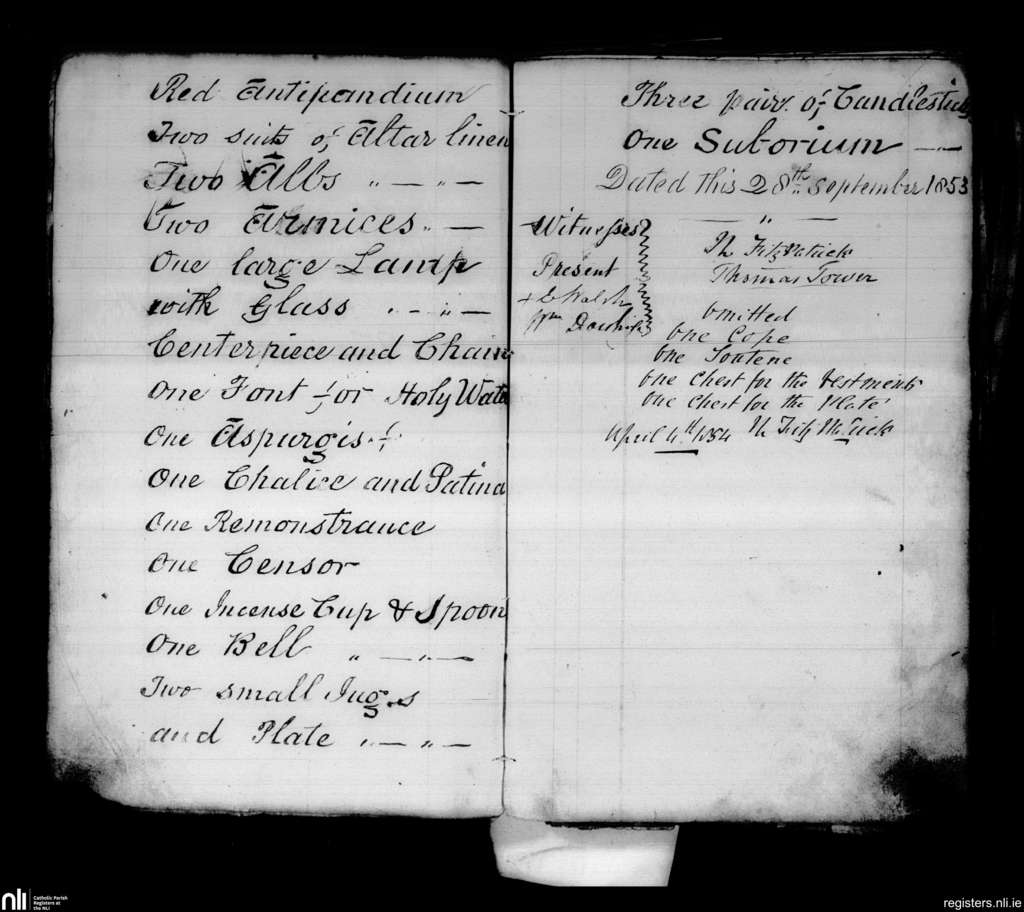 Red Antipandium
Two suits of Altar linen
Two Albs " — " —
Two Armices " —
One large Lamp
with Glass " — " —
Centerpiece and Chain
One Font for Holy Water
One Aspurgis
One Chalice and Patina
One Remonstrance
One Censor
One Incense Cup & Spoon
One Bell " — " —
Two small Jugs
and Plate " — " —
Three pair of Candlestick
One Suborium —
Dated this 28th September 1853
— " —
Witnesses
Present
+ Walsh
Wm
Th Fitzpatrick
Thomas Tower
Omitted
One Cope
One Soutene
One Chest for the Vestments
One Chest for the Plate
April 4th 1854 Th Fitz
nli
Catholic Parish
Registers at
the NLI
registers.nli.ie